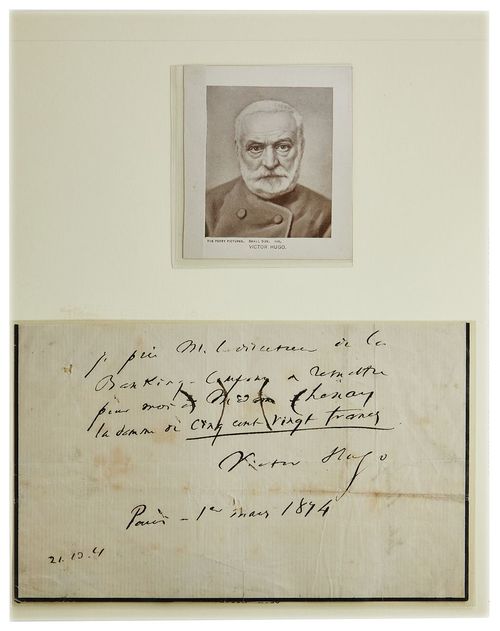 THE PERRY PICTURES. SMALL SIZE.
VICTOR HUGO.
je prie M. le directeur de la
Banking-Company de remettre
pour moi à Madame Chenay
la somme de Cinq cent vingt francs
Victor Hugo
Paris - 1er mars 1874
21.10.4